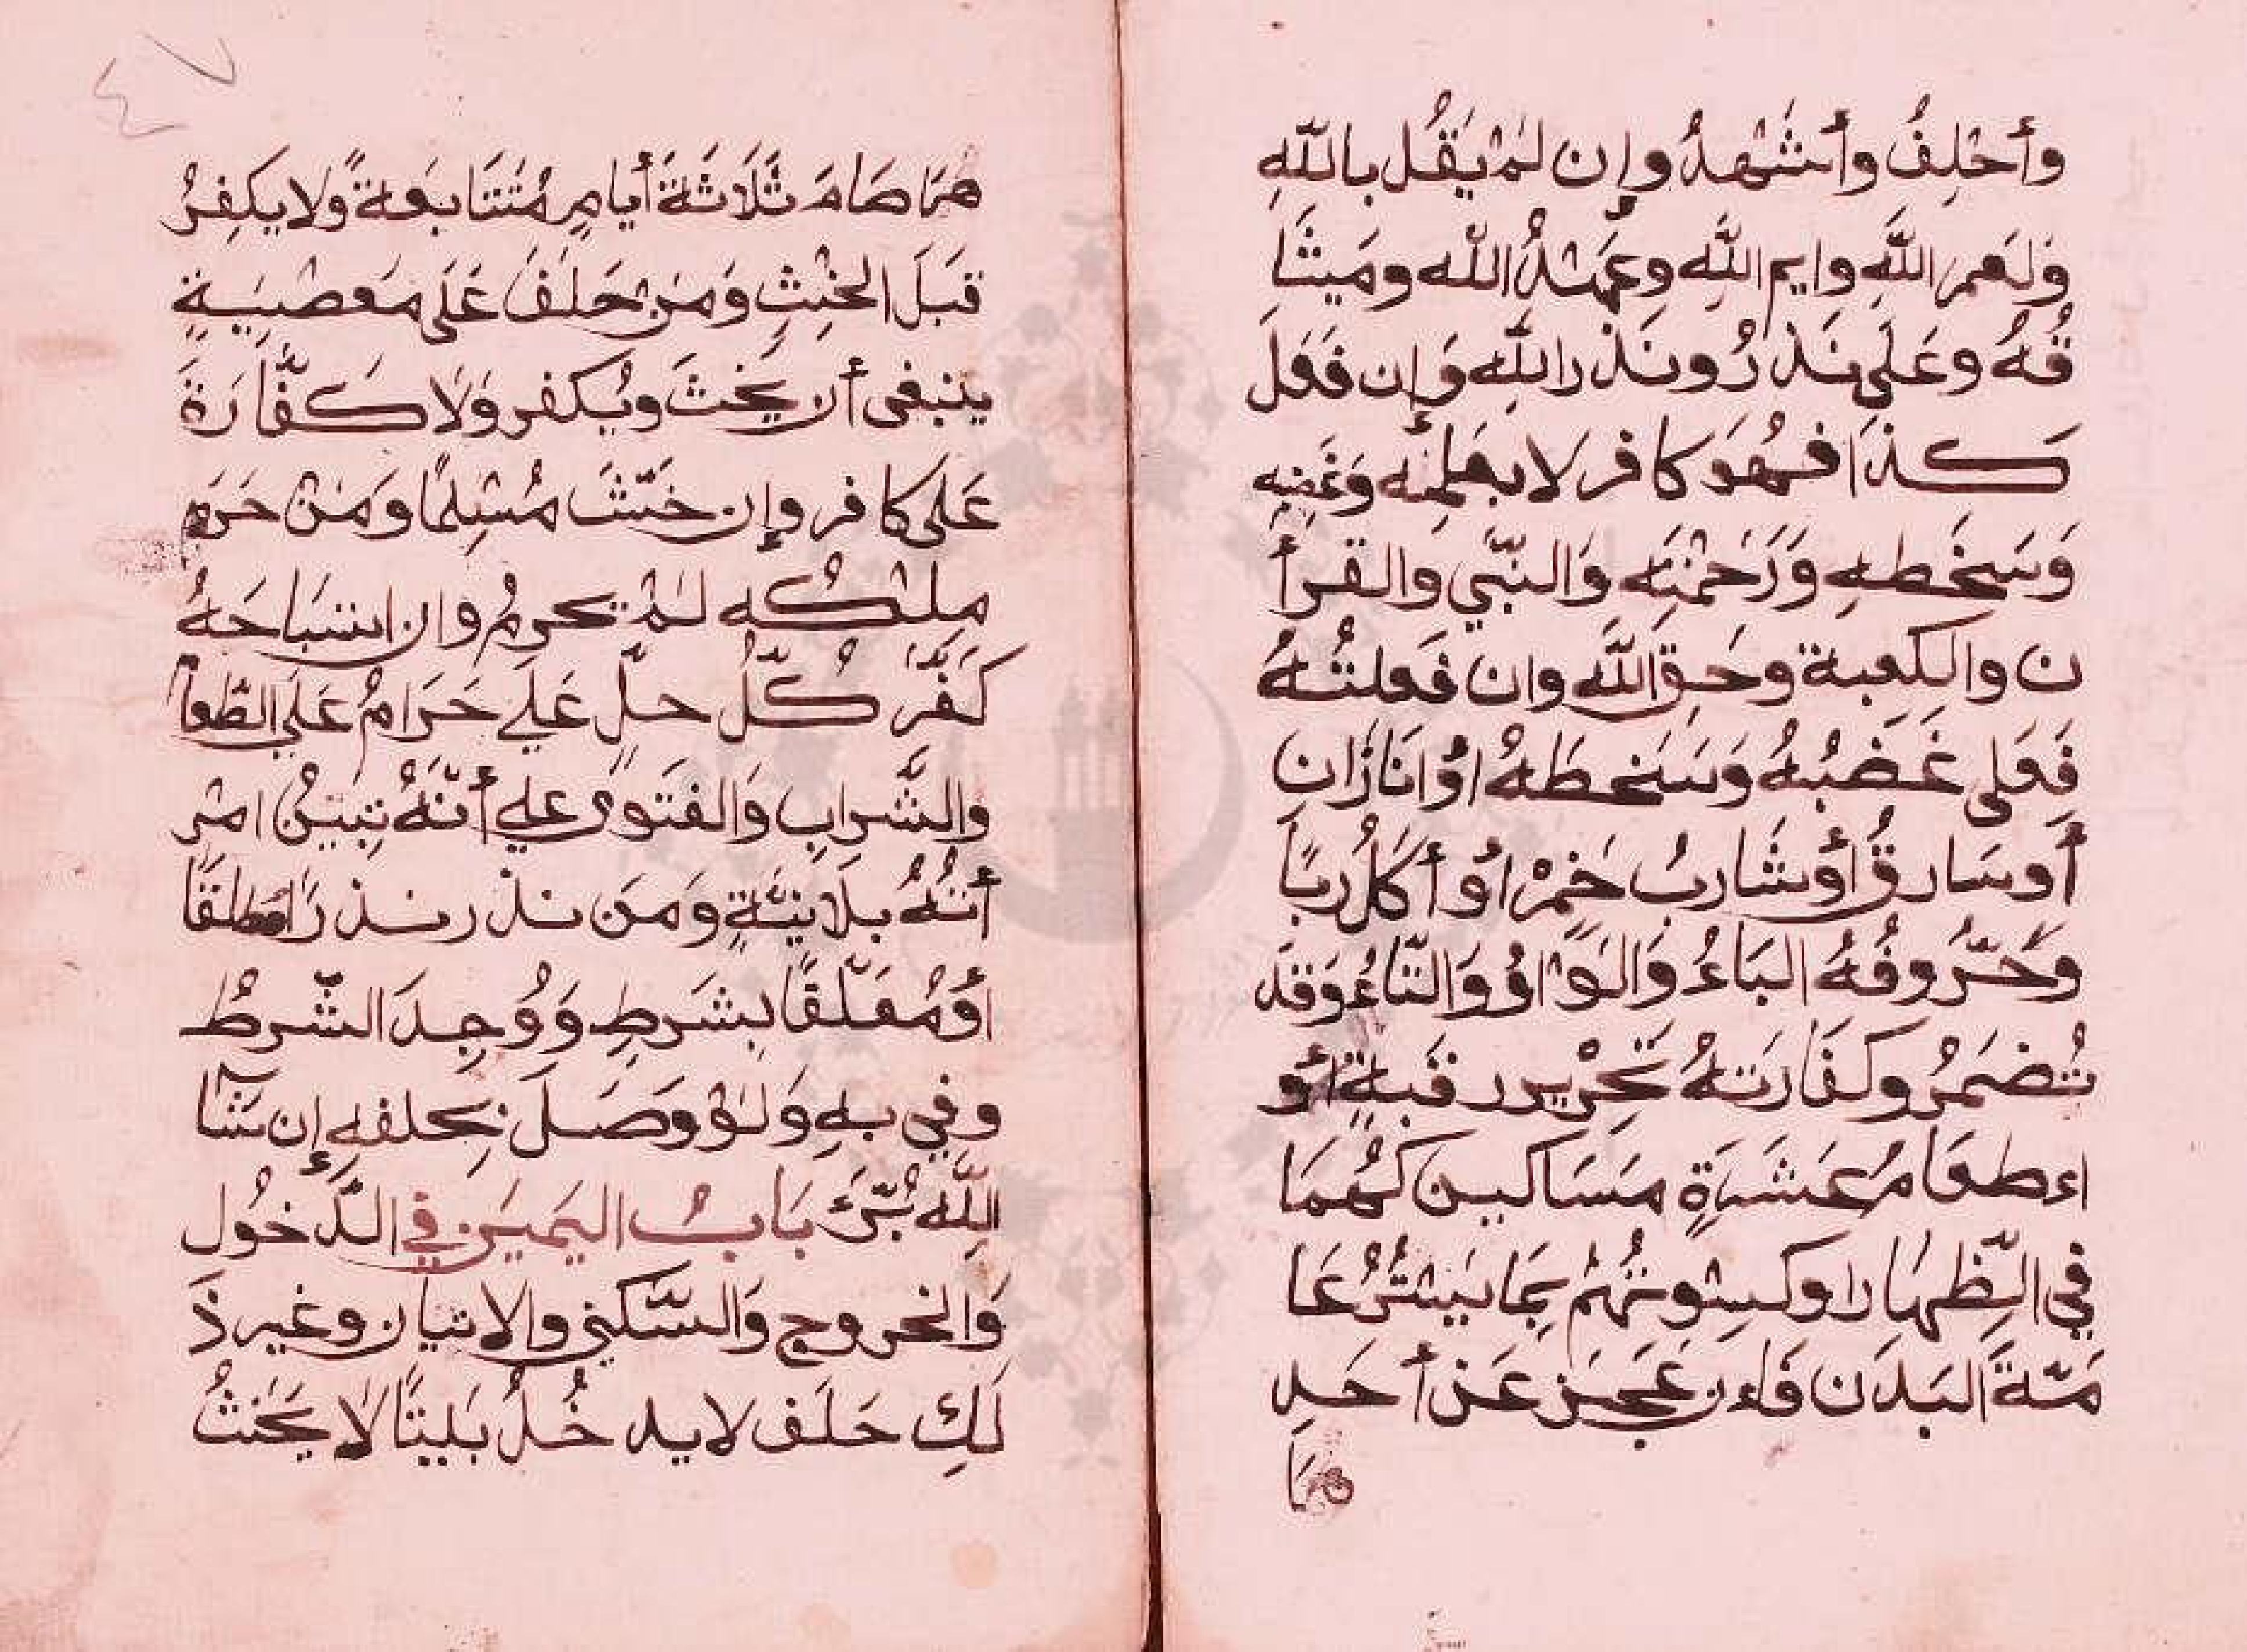 وأحْلِفُ وأشْهدُ وإن لمْ يَقُل بالله
وَلَعمر اللَّهِ وايم اللَّهِ وعهدُ اللَّه ومَيثَا
قُهُ وعَلَى نَذرُ ونَذر اللَّهِ وَإن فَعَلَ
كَذا فهُوَ كافر لا بعلمِه وغَضبِه
وَسَخَطهِ وَرَحْمتِه وَالنّبي والقرأ
ن والكعبة وحَق اللَّه وان فَعلتُهُ
فَعَلى غَضبُهُ وَسَخطَهُ اوْ انَا زَان
أو سَارقُ أوْ شَاربُ خَمِرْ اوْ أكَلُ ربًا
وحَرُوفُهُ البَاءُ وَالوَاوُ وَالتّاءُ وَقد
تُضمَرُ وكفَارَتهُ تَحْرير رقبةٍ أوْ
اءطعَامُ عَشَرَةِ مَسَاكين كهُمَا
في الظِّهَار او كسِوتهُمْ بمَا يَسْتُرُ عَا
مّةَ البَدَن فَاءن عَجَز عَن أحَدِ
هَا
٤٧
هَمَا صَامَ ثَلَاثةَ أيامٍ مُتَتَابعَةً وَلا يكفِرُ
قبَلَ الحنِثِ وَمَن حَلَفَ عَلَى مَعصْيَةٍ
ينبغى أن يَحنثَ ويُكفر وَلَا كَفَّارَةَ
عَلى كافر وإن حَنثَ مُسْلِمًا وَمَنْ حَرَم
مِلْكُه لمْ تحرمُ وان استَبَاحَهُ
كَفَّرَ كُلُّ حلٍّ عَليَ حَرَامُ عَلَى الطَّعا
والشَّرابِ وَالفَتَوى علي أنّهُ تبَيْنُ امْر
أتهُ بلَا نيَّةٍ وَمَن نذر نذرًا مطلقًا
أوْ مُعَلّقًا بشَرطٍ وَوُجِدَ الشّرطُ
وفي بهِ وَلَوْ وصَلَ بحلفهِ إن شَآ
اللَّه بُرّئَ بَابُ اليَمين في الدّخُول
وَالخروج وَالسّكني والاتيان وغير ذَ
لَكِ حَلَف لا يدخُلُ بَيتًا لَا يَحنثُ